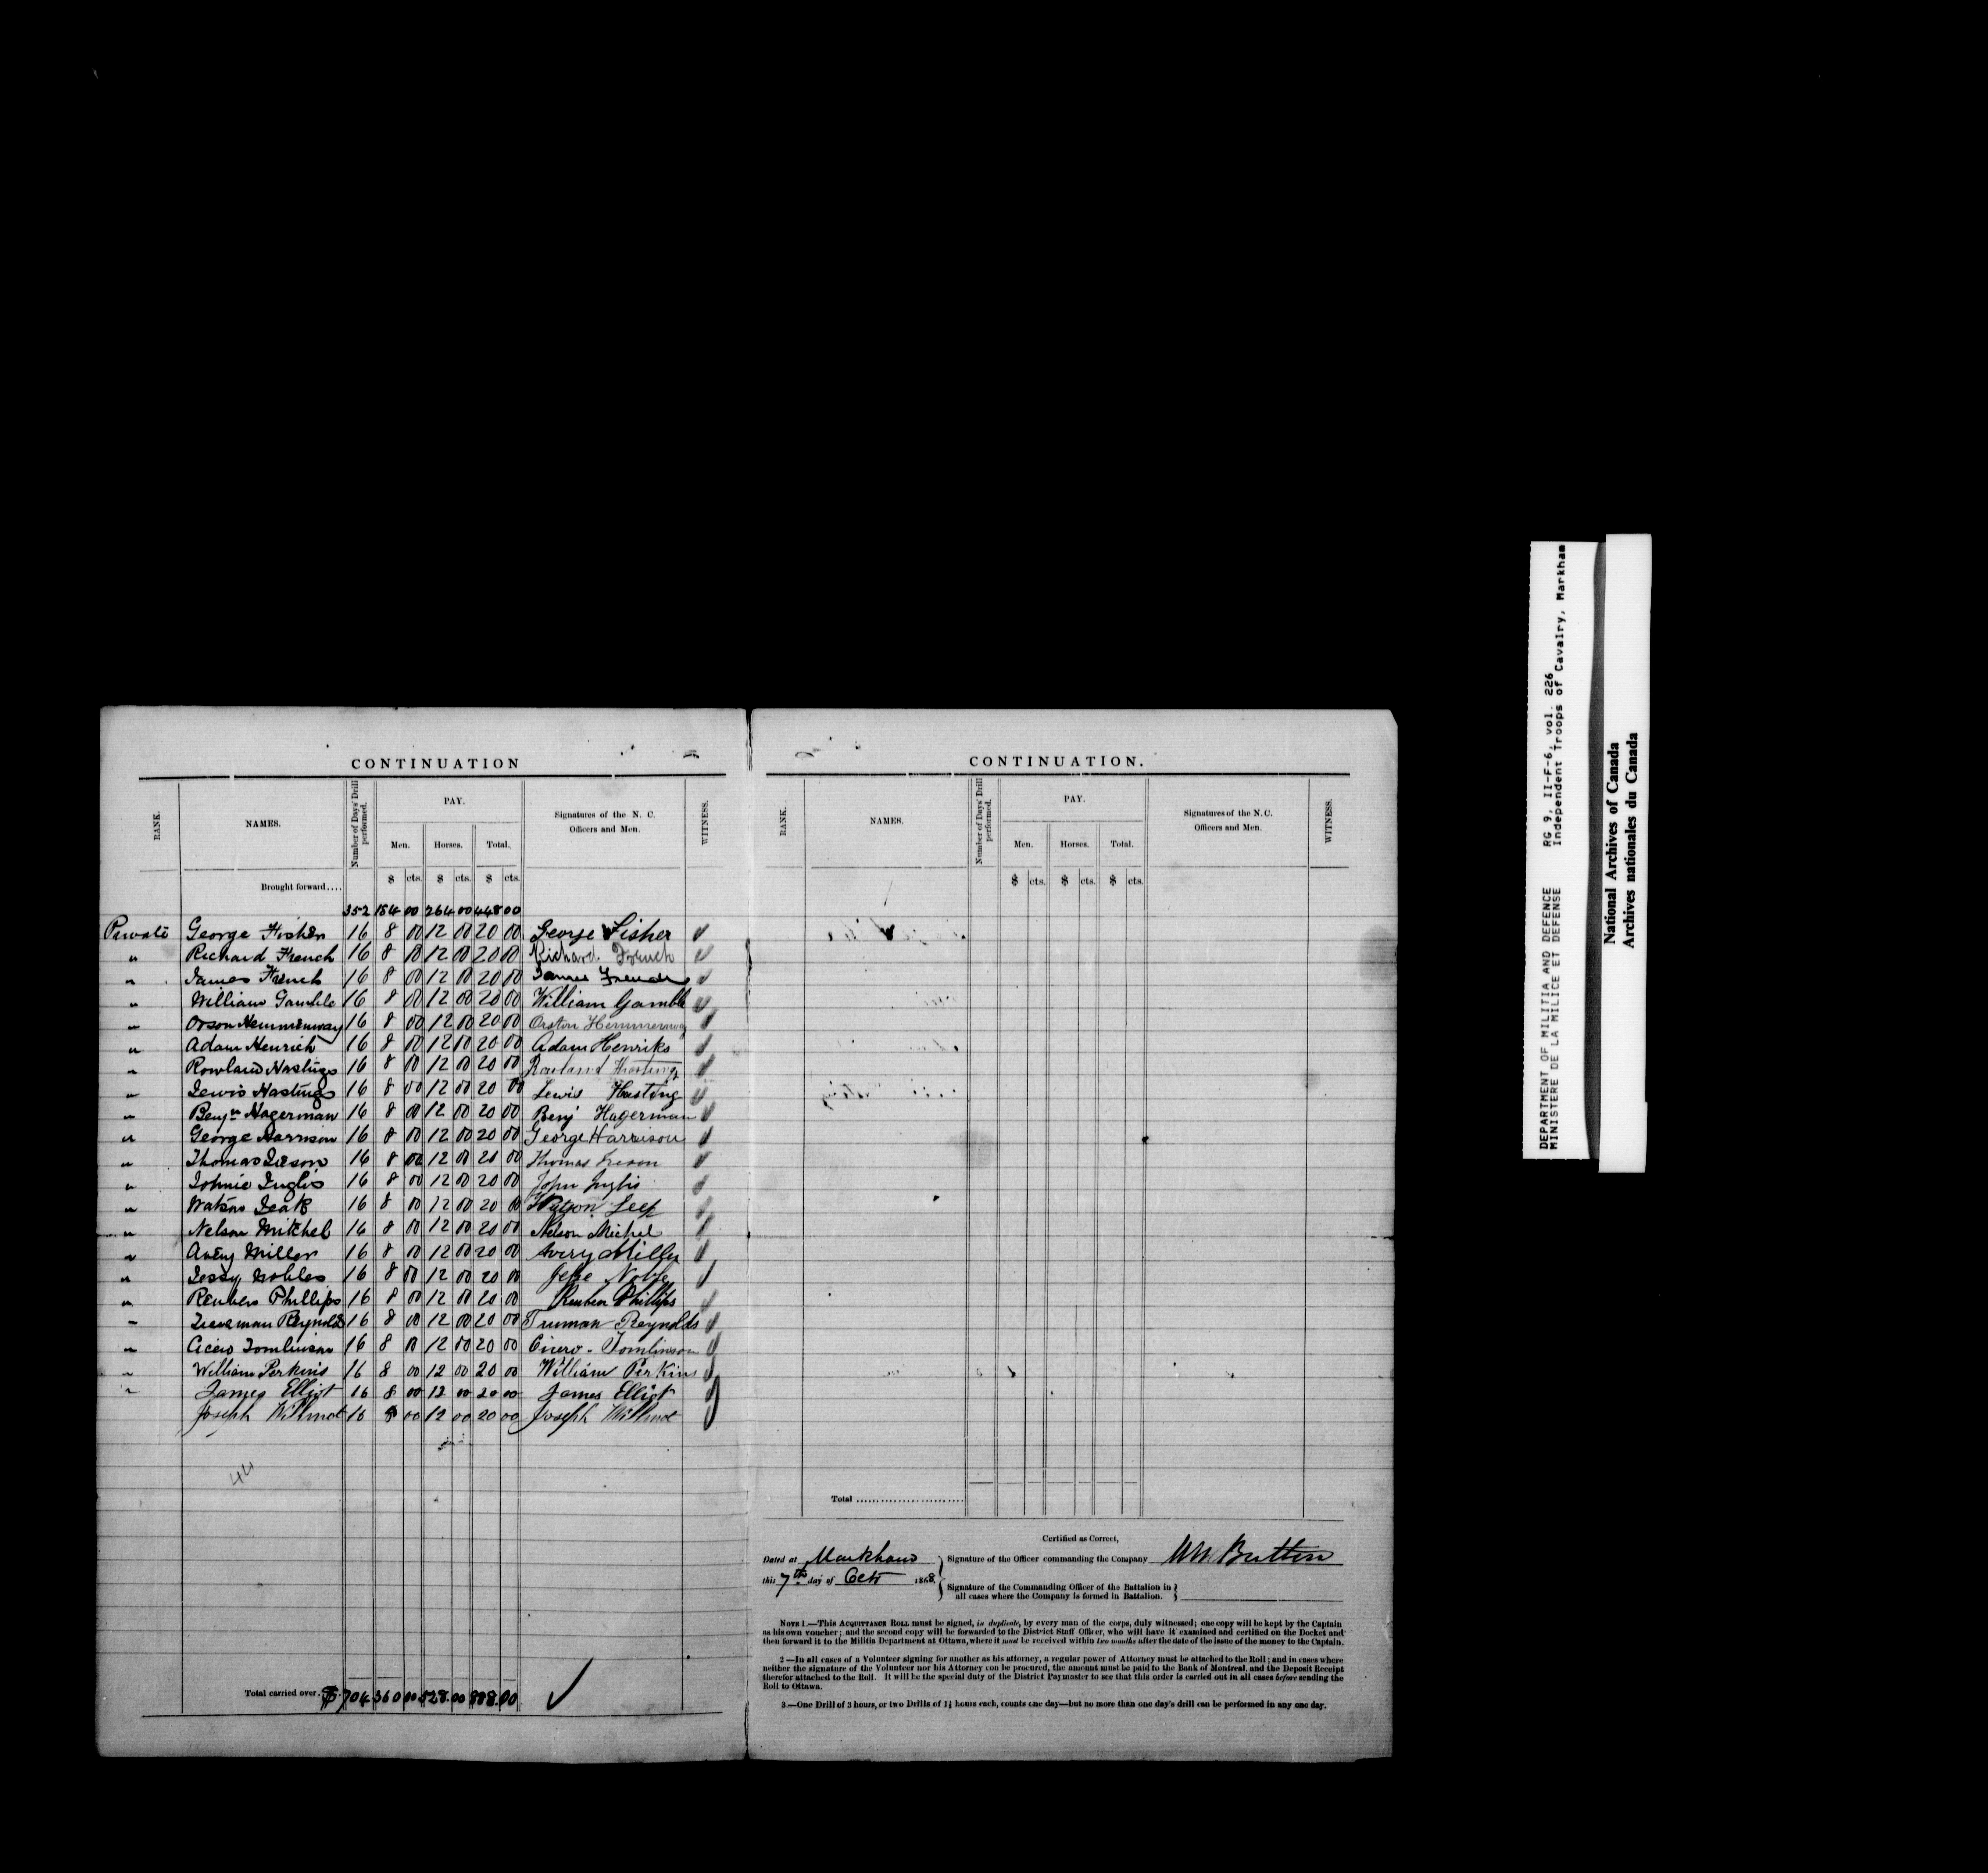 CONTINUATION
RANK. NAMES. Number of Days' Drill performed. PAY. Signatures of the N. C. Officers and Men. WITNESS.
Men. Horses. Total.
$ cts. $ cts. $ cts.
Brought forward....
352 184 00 264 00 448 00
Private George Fisher 16 8 00 12 00 20 00 George Fisher
" Richard French 16 8 00 12 00 20 00 Richard French
" James French 16 8 00 12 00 20 00 James French
" William Gamble 16 8 00 12 00 20 00 William Gamble
" Orson Hemmenway 16 8 00 12 00 20 00 Orston Hemmenway
" Adam Henrich 16 8 00 12 00 20 00 Adam Henriks
" Rowland Hastings 16 8 00 12 00 20 00 Rowland Hastings
" Lewis Hastings 16 8 00 12 00 20 00 Lewis Hasting
" Benjn Hagerman 16 8 00 12 00 20 00 Benj Hagerman
" George Harrison 16 8 00 12 00 20 00 George Harrison
" Thomas 16 8 00 12 00 20 00 Thomas
" Johnie Inglis 16 8 00 12 00 20 00 John Inglis
" Watson Leak 16 8 00 12 00 20 00 Watson
" Nelson Mitchel 16 8 00 12 00 20 00 Nelson Michel
" Avery Miller 16 8 00 12 00 20 00 Avery Miller
" Jessy Nobles 16 8 00 12 00 20 00 Jesse Noble
" Reuben Phillips 16 8 00 12 00 20 00 Reuben Phillips
" Trueman Reynolds 16 8 00 12 00 20 00 Truman Reynolds
" Cicero Tomlinson 16 8 00 12 00 20 00 Cicero Tomlinson
" William Perkins 16 8 00 12 00 20 00 William Perkins
" James Elliot 16 8 00 12 00 20 00 James Elliot
Joseph Willmot 16 8 00 12 00 20 00 Joseph Willmot
44
Total carried over. $ 704 360 00 528 00 888 00
CONTINUATION.
RANK. NAMES. Number of Days' Drill performed. PAY. Signatures of the N. C. Officers and Men. WITNESS.
Men. Horses. Total.
$ cts. $ cts. $ cts.
Total ........................
Certified as Correct,
Dated at Markham Signature of the Officer commanding the Company Wm Button
this 7th day of Octr 1868.
Signature of the Commanding Officer of the Battalion in
all cases where the Company is formed in Battalion.
NOTE 1.—This ACQUITTANCE ROLL must be signed, in duplicate, by every man of the corps, duly witnessed; one copy will be kept by the Captain
as his own voucher; and the second copy will be forwarded to the District Staff Officer, who will have it examined and certified on the Docket and
then forward it to the Militia Department at Ottawa, where it must be received within two months after the date of the issue of the money to the Captain.
2—In all cases of a Volunteer signing for another as his attorney, a regular power of Attorney must be attached to the Roll; and in cases where
neither the signature of the Volunteer nor his Attorney con be procured, the amount must be paid to the Bank of Montreal, and the Deposit Receipt
therefor attached to the Roll. It will be the special duty of the District Paymaster to see that this order is carried out in all cases before sending the
Roll to Ottawa.
3.—One Drill of 3 hours, or two Drills of 1½ hours each, counts one day—but no more than one day's drill can be performed in any one day.
DEPARTMENT OF MILITIA AND DEFENCE RG 9, II-F-6, vol. 226
MINISTERE DE LA MILICE ET DEFENSE Independent Troops of Cavalry, Markham
National Archives of Canada
Archives nationales du Canada